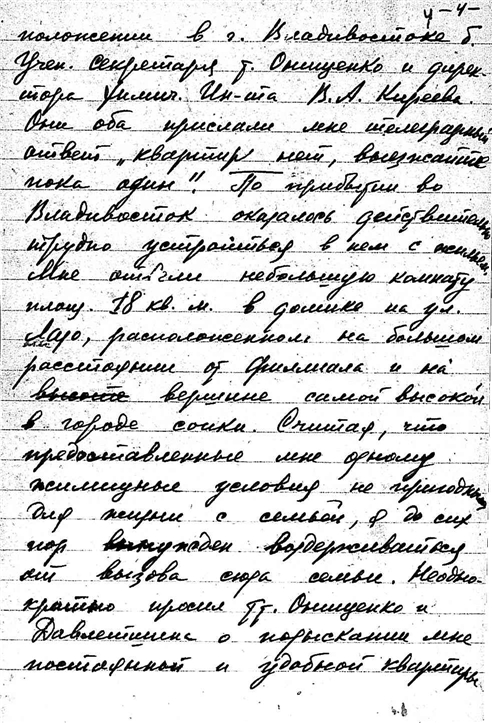 4 -4-
положении в г. Владивостоке б.
Учен. секретаря т. Онищенко и дирек-
тора Химич. Ин-та В.А. Киреева.
Они оба прислали мне телеграфный
ответ „квартир нет, выезжайте
пока один". По прибытии во
Владивосток оказалось действительно
трудно устроиться в нем с жильем.
Мне отвели небольшую комнату
площ. 18 кв. м. в домике на ул.
Лазо, расположенном на большом
расстоянии от Филиала и на
высоте вершине самой высокой
в городе сопки. Считая, что
предоставленные мне одному
жилищные условия не пригодны
для жизни с семьей, я до сих
пор вынужден воздерживаться
от вызова сюда семьи. Неодно-
кратно просил тт. Онищенко и
Давлетшина о подыскании мне
постоянной и удобной квартиры